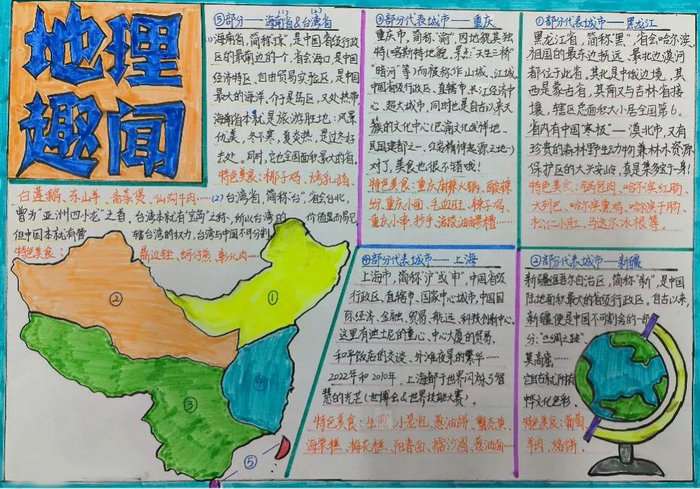 地理
趣闻
⑤部分——海南省&台湾省
(1) (2)
(1)海南省,简称"琼",是中国省级行政
区的最南边的一个,省会海口是中国
经济特区,自由贸易实验区,是中国
最大的海岛,介于是岛区,又处热带,
海南省本就是旅游胜地:风景
优美,冬不寒,夏炎热,是过冬好
去处,同时,它也全国面积最大的省。
特色美食:椰子鸡、烤乳猪、
白莲鹅、东山羊、斋菜煲、
(2)台湾省,简称"台",省会台北,
曾为"亚洲四小龙"之首,台湾本就有"宝岛"之称,所以台湾的
价值显而易见,
但中国本就有管
辖台湾的权力,台湾与中国不可分割。
特色美食:
③部分代表城市——重庆
重庆市,简称"渝",因地貌其独
特(喀斯特地貌,景点:"天生三桥"
"暗河"等)而被称作山城、江城,
中国省级行政区、直辖市、长江经济中
心、超大城市,同时也是自古以来天
族的文化中心(巴渝文化发祥地、
对了,美食也很不错哦!
特色美食:重庆麻辣火锅、酸辣
粉、重庆小面、毛血旺、辣子鸡、
①部分代表城市——黑龙江
黑龙江省,简称"黑",省会哈尔滨
祖国的最东边抚远、最北边漠河
都位于此省,其北是中俄边境,其
西是蒙古省,其南又与吉林省接
壤,辖区总面积大小居全国第6。
省内有中国"寒极"——漠北中,又有
珍贵的森林野生动物的森林木资源
保护区的大兴安岭,真是集多宝于一身!
特色美食:锅包肉、哈尔滨红肠、
大列巴、哈尔滨熏鸡、哈尔滨干肠、
松仁小肚、马迭尔冰棍等。
④部分代表城市——上海
上海市,简称"沪"或"申",中国省级
行政区、直辖市、国家中心城市,中国国
际经济、金融、贸易、航运、科技创新中心。
这里有迪士尼的童心、中心大厦的贸易、
和平饭店的交谈、外滩夜景的繁华……
2022年和2010年,上海都于世界闪烁了智
慧的光芒(世博会&世界技能大赛)。
特色美食:生煎、小笼包、葱油饼、蟹壳黄、
海棠糕、梅花糕、阳春面、
②部分代表城市——新疆
新疆维吾尔自治区,简称"新",是中国
陆地面积最大的省级行政区,自古以来,
新疆便是中国不可割舍的一部
分,"丝绸之路"
特色美食:葡萄、
羊肉、烙饼、
①
②
③
④
⑤